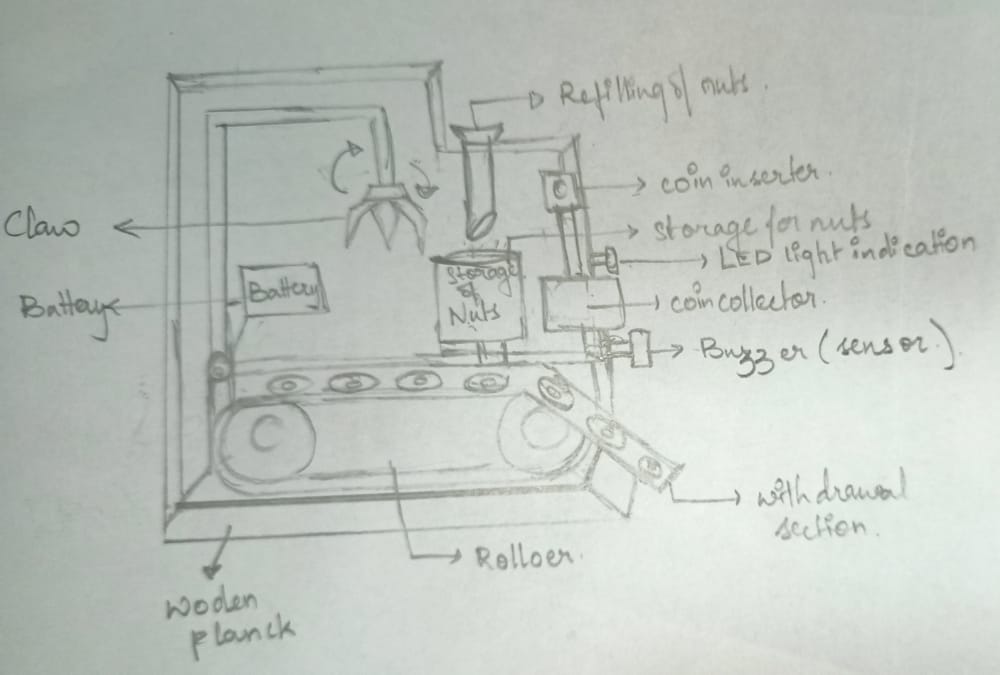 Refilling of nuts.
coin inserter.
storage for nuts
LED light indication
Claw
Battery
Battery
Storage
of
Nuts
coin collector.
Buzzer (sensor).
withdrawal
section.
Rolloer.
Wooden
planck